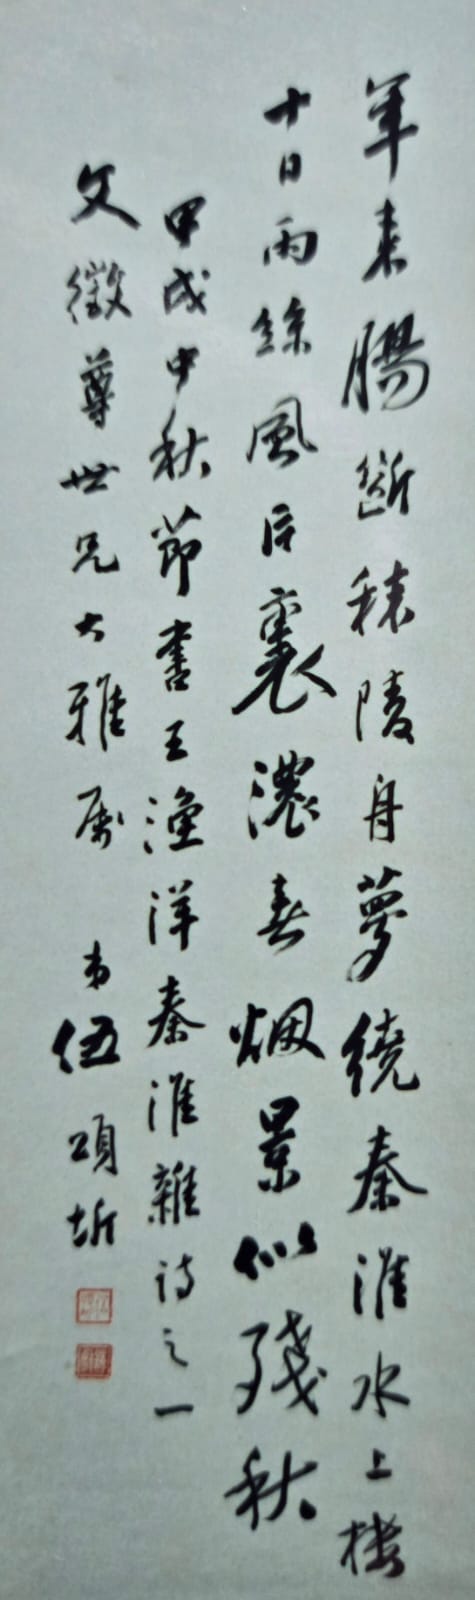 年来腸斷秣陵舟夢繞秦淮水上楼
十日雨絲風片裏濃春烟景似殘秋
甲戌中秋節書王漁洋秦淮雜詩之一
文徵尊世兄大雅属 弟伍頌圻